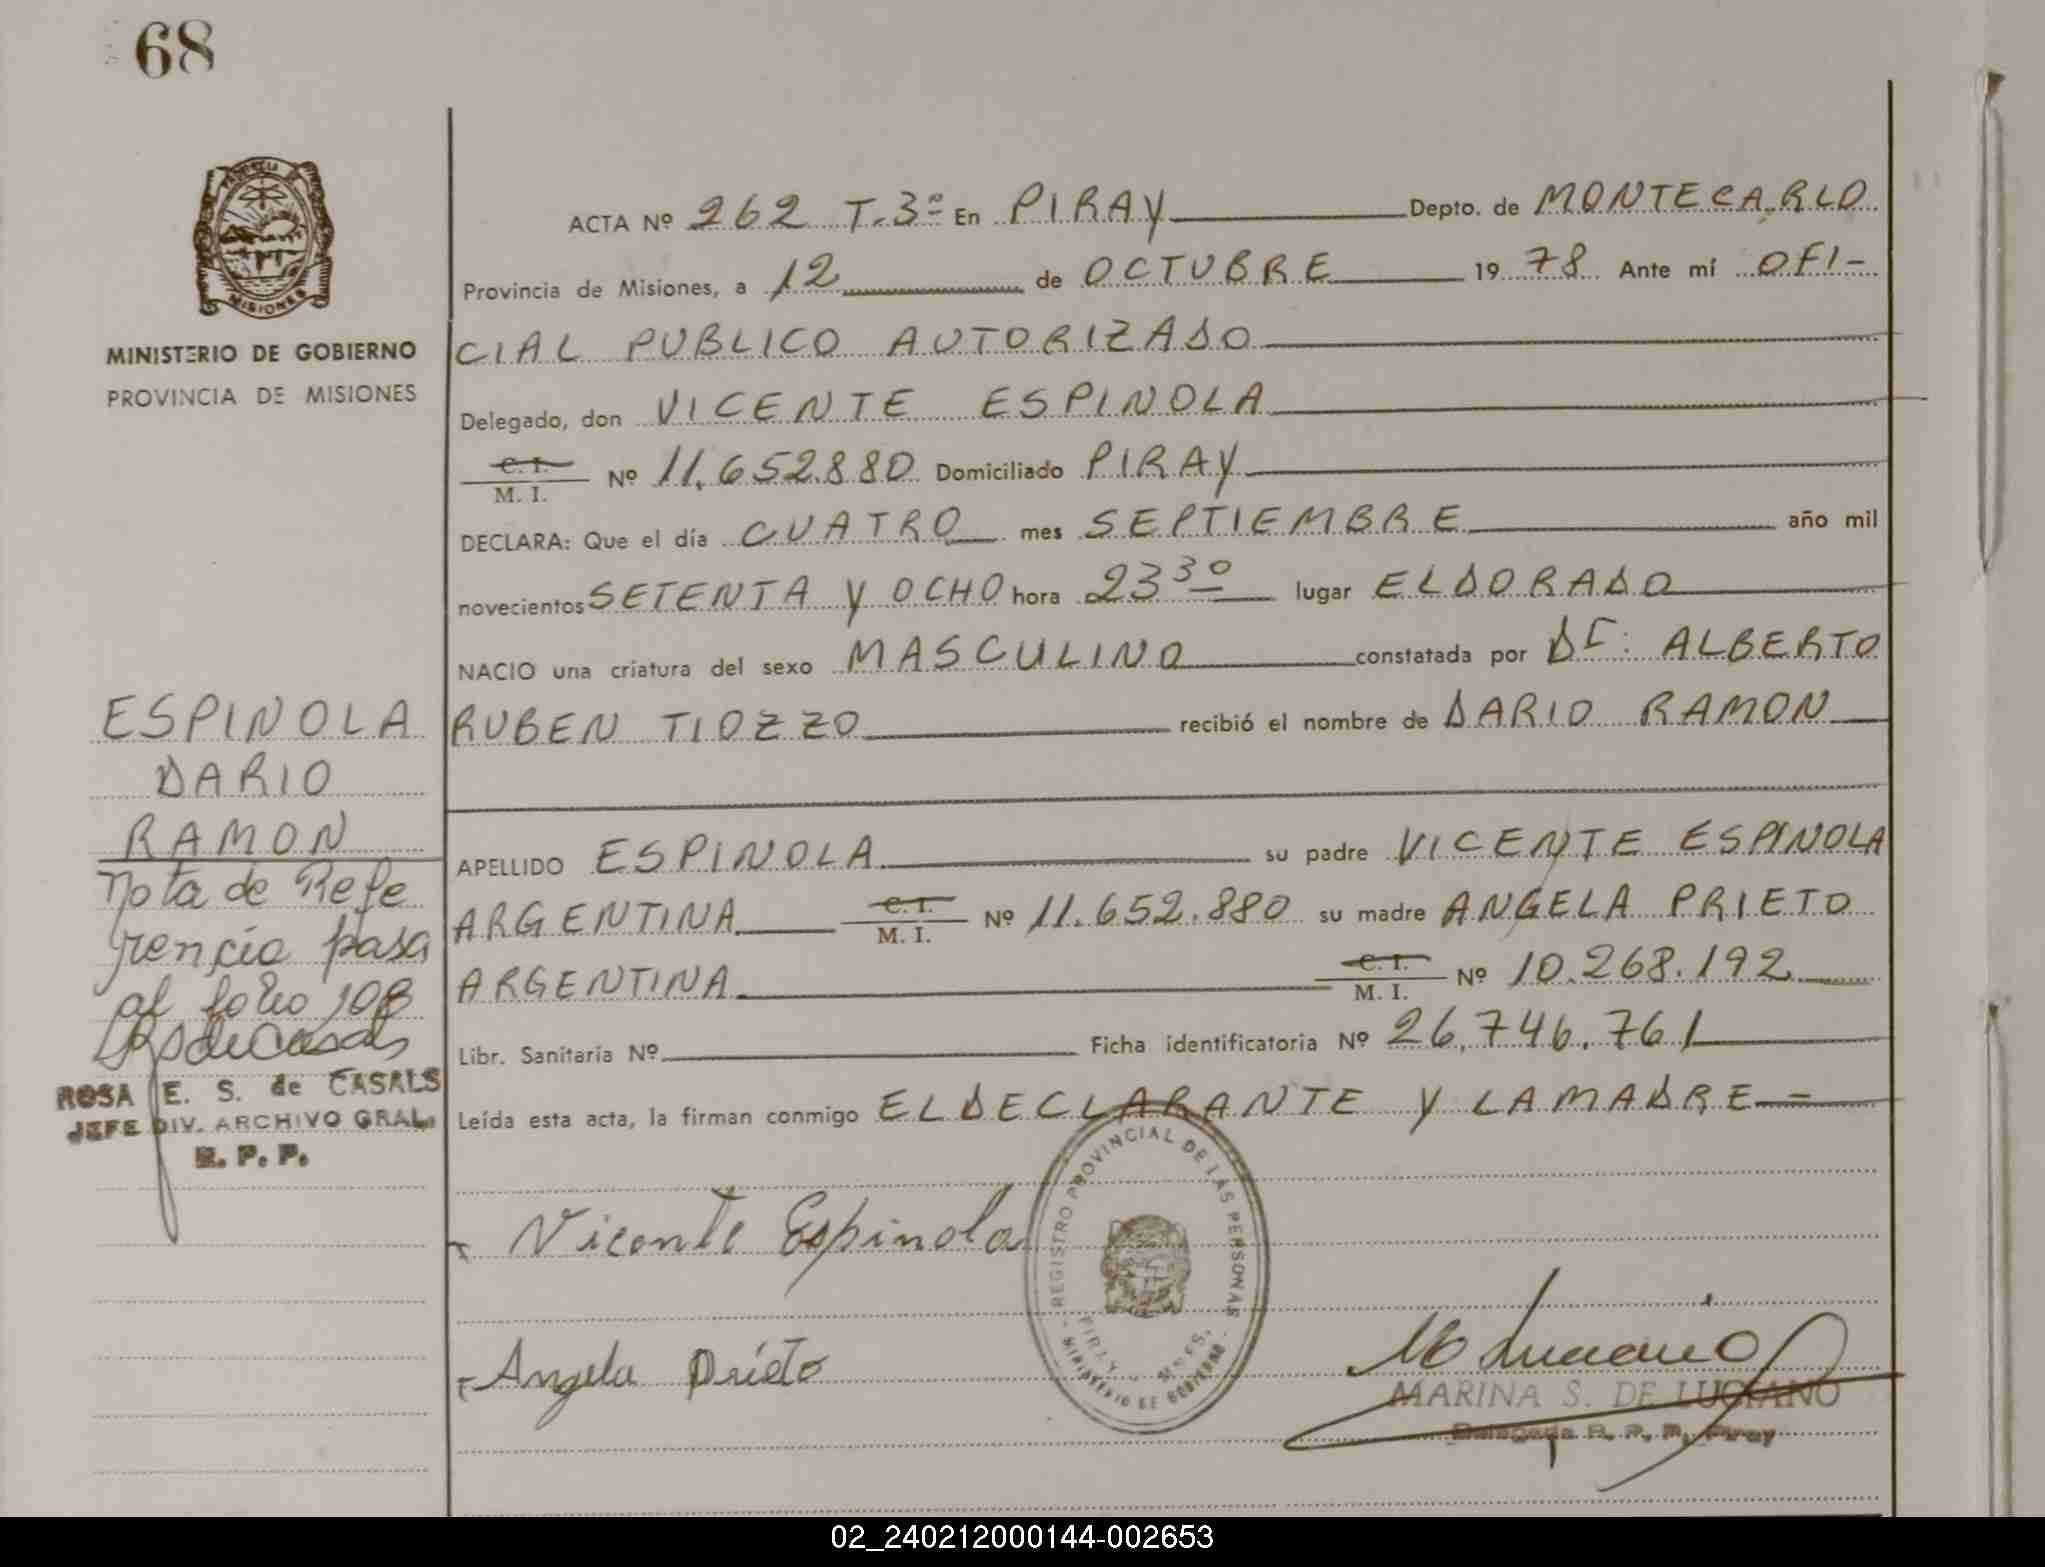 68
PROVINCIA DE
MISIONES
MINISTERIO DE GOBIERNO
PROVINCIA DE MISIONES
ACTA Nº 262 T.3º En PIRAY Depto. de MONTECARLO
Provincia de Misiones, a 12 de OCTUBRE 1978 Ante mí OFI-
CIAL PUBLICO AUTORIZADO
Delegado, don VICENTE ESPINOLA
C. I.
M. I. Nº 11.652.880 Domiciliado PIRAY
DECLARA: Que el día CUATRO mes SEPTIEMBRE año mil
novecientos SETENTA Y OCHO hora 23 30 lugar ELDORADO
NACIO una criatura del sexo MASCULINO constatada por Dr: ALBERTO
RUBEN TIOZZO recibió el nombre de DARIO RAMON
APELLIDO ESPINOLA su padre VICENTE ESPINOLA
ARGENTINA C. I. M. I. Nº 11.652.880 su madre ANGELA PRIETO
ARGENTINA C. I. M. I. Nº 10.268.192
Libr. Sanitaria Nº Ficha identificatoria Nº 26.746.761
Leída esta acta, la firman conmigo EL DECLARANTE Y LA MADRE =
ESPINOLA
DARIO
RAMON
Nota de Refe
rencia pasa
al folio 108
ROSA E. S. de CASALS
JEFE DIV. ARCHIVO GRAL.
R. P. P.
Vicente Espinola
Angela Prieto
REGISTRO PROVINCIAL DE LAS PERSONAS
PIRAY - MNES.
MINISTERIO DE GOBIERNO
M Luciano
MARINA S. DE LUCIANO
Delegada R. P. P. Piray
02_240212000144-002653